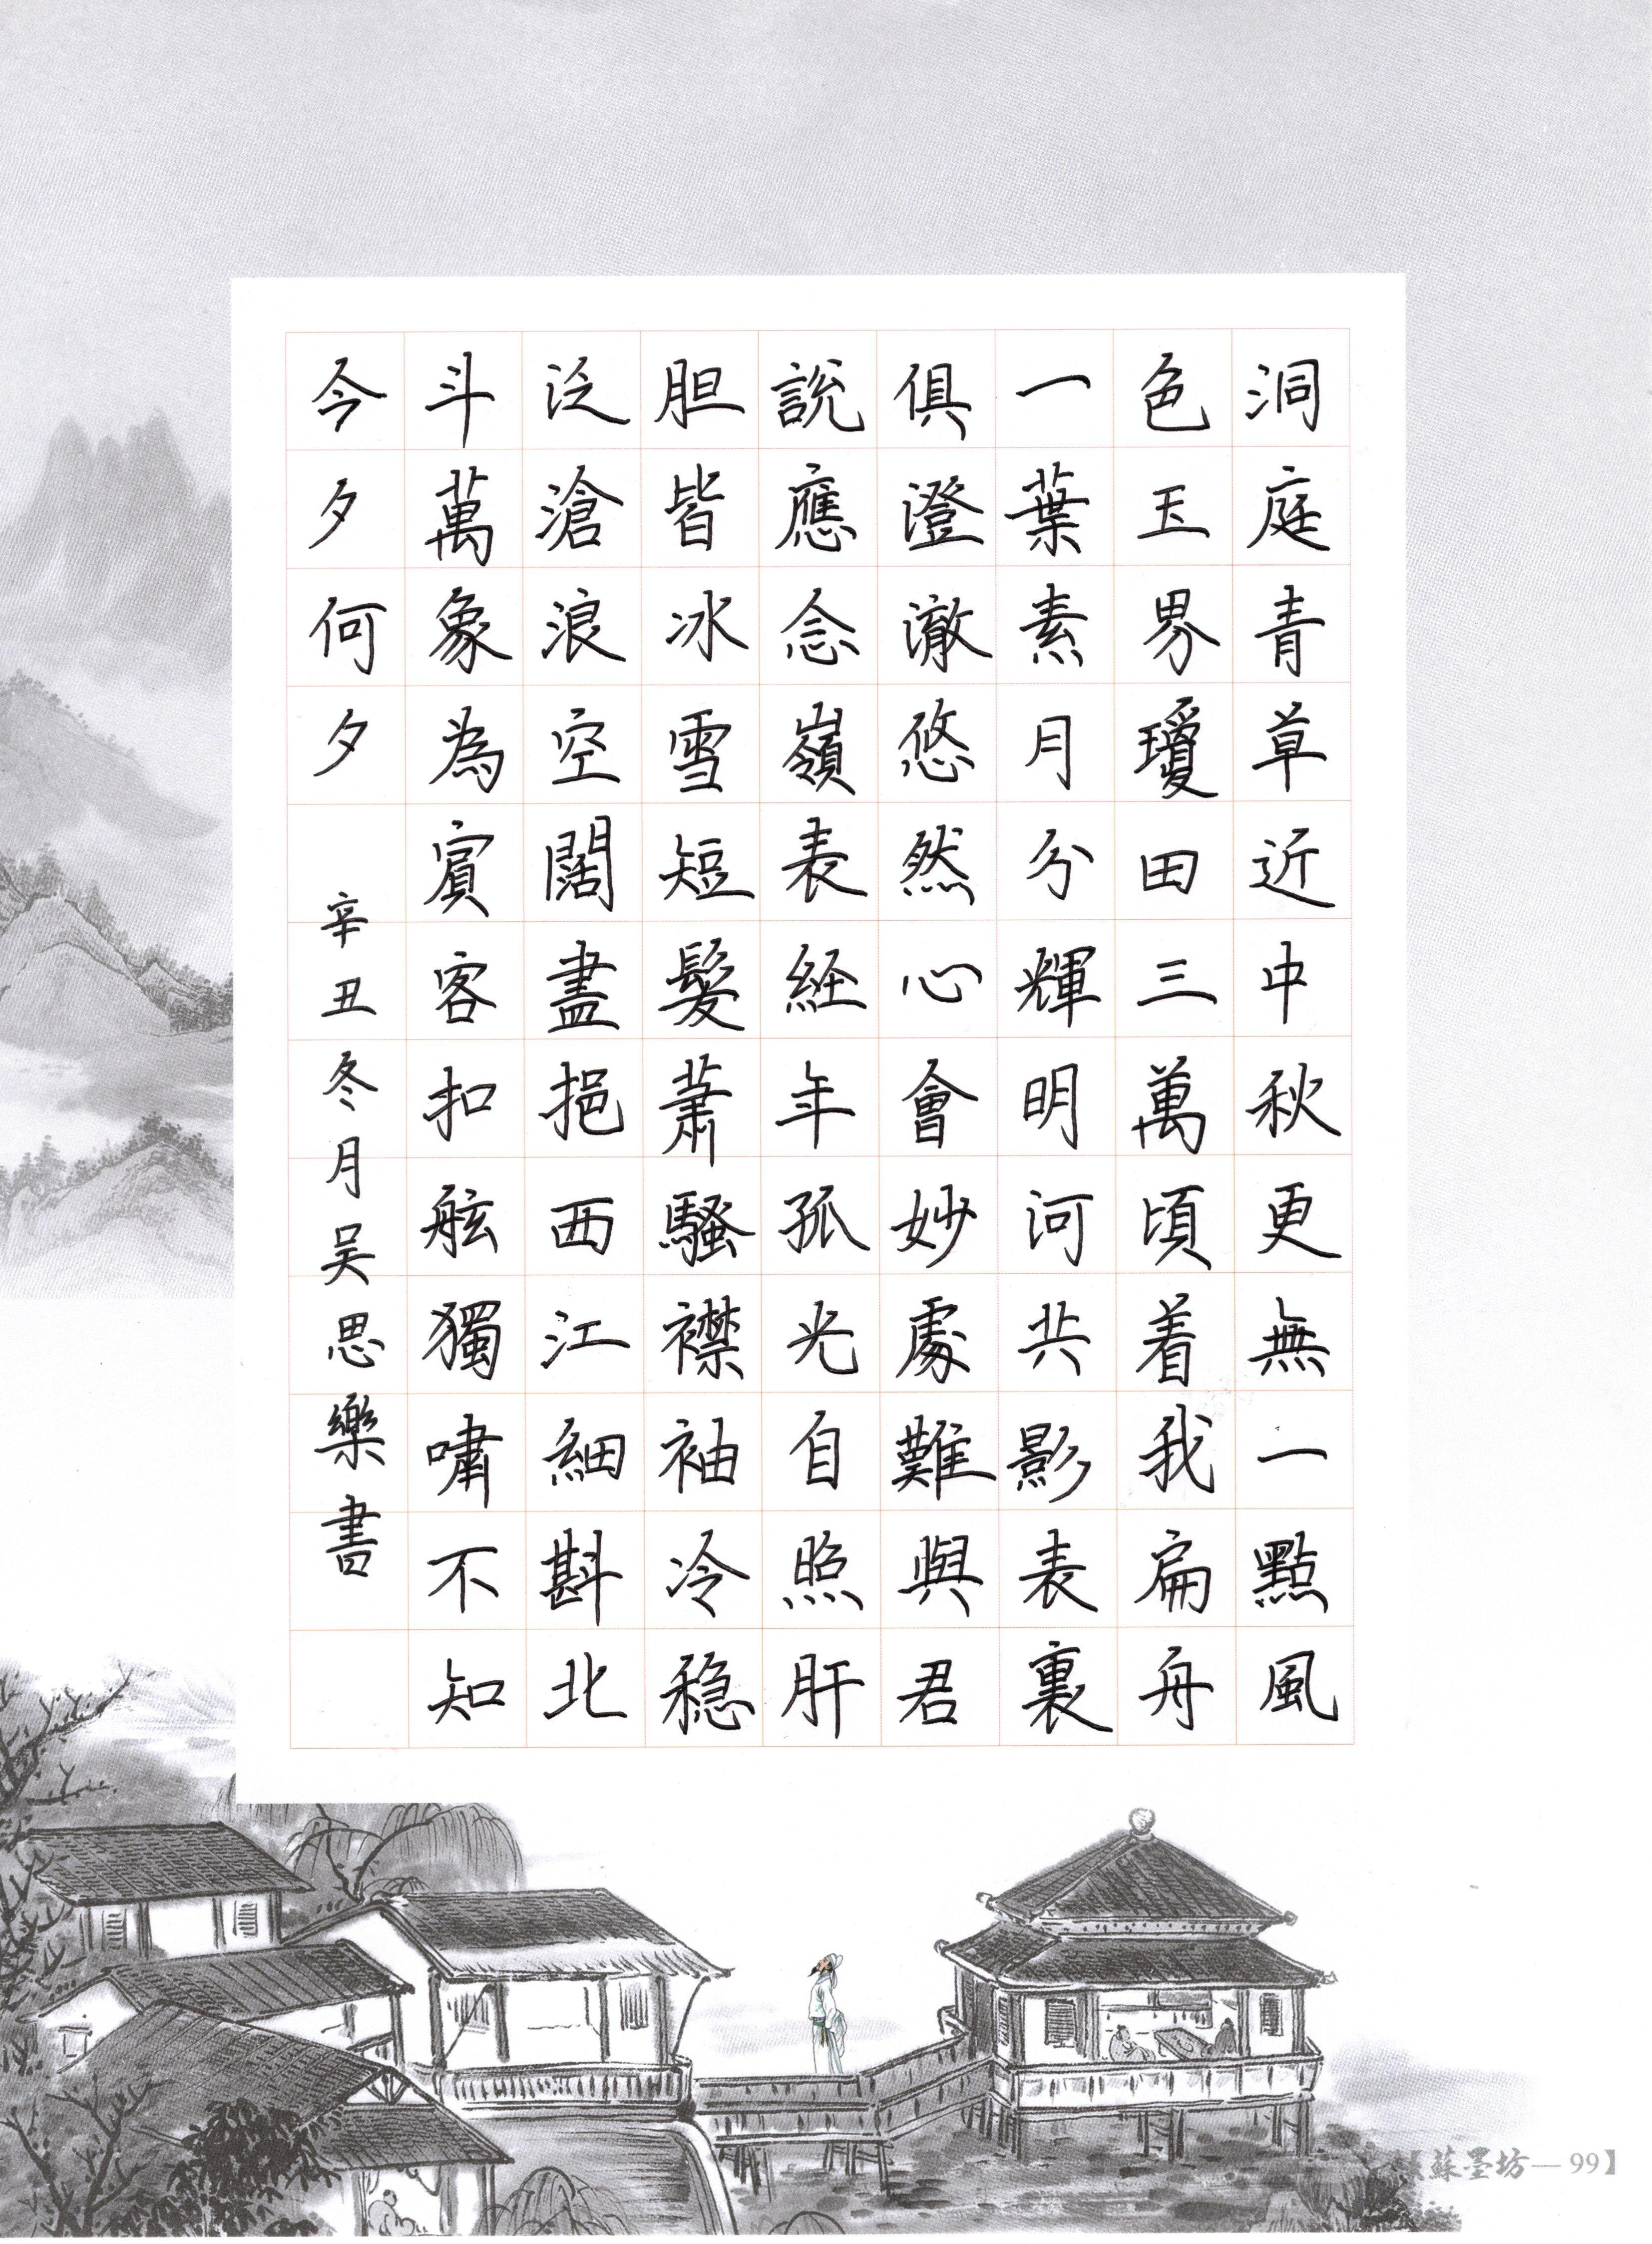 洞庭青草近中秋更無一點風
色玉界瓊田三萬頃着我扁舟
一葉素月分輝明河共影表裏
俱澄澈悠然心會妙處難與君
説應念嶺表経年孤光自照肝
胆皆冰雪短髮蕭騷襟袖冷穏
泛滄浪空闊盡挹西江細斟北
斗萬象為賓客扣舷獨嘯不知
今夕何夕
辛丑冬月吴思樂書
蘇墨坊—99】